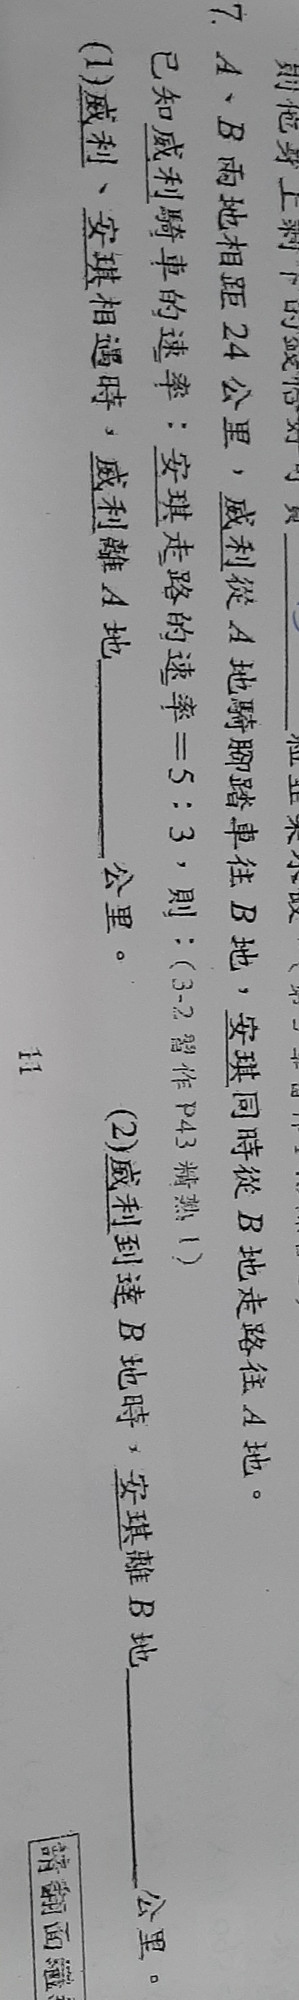 則他身上剩下的錢恰好可買
7. A、B兩地相距24公里，威利從A地騎腳踏車往B地，安琪同時從B地走路往A地。
已知威利騎車的速率：安琪走路的速率＝5：3，則：(3-2習作P43精熟1)
(1)威利、安琪相遇時，威利離A地＿＿＿＿＿公里。 (2)威利到達B地時，安琪離B地＿＿＿＿＿公里。
11
請翻面繼